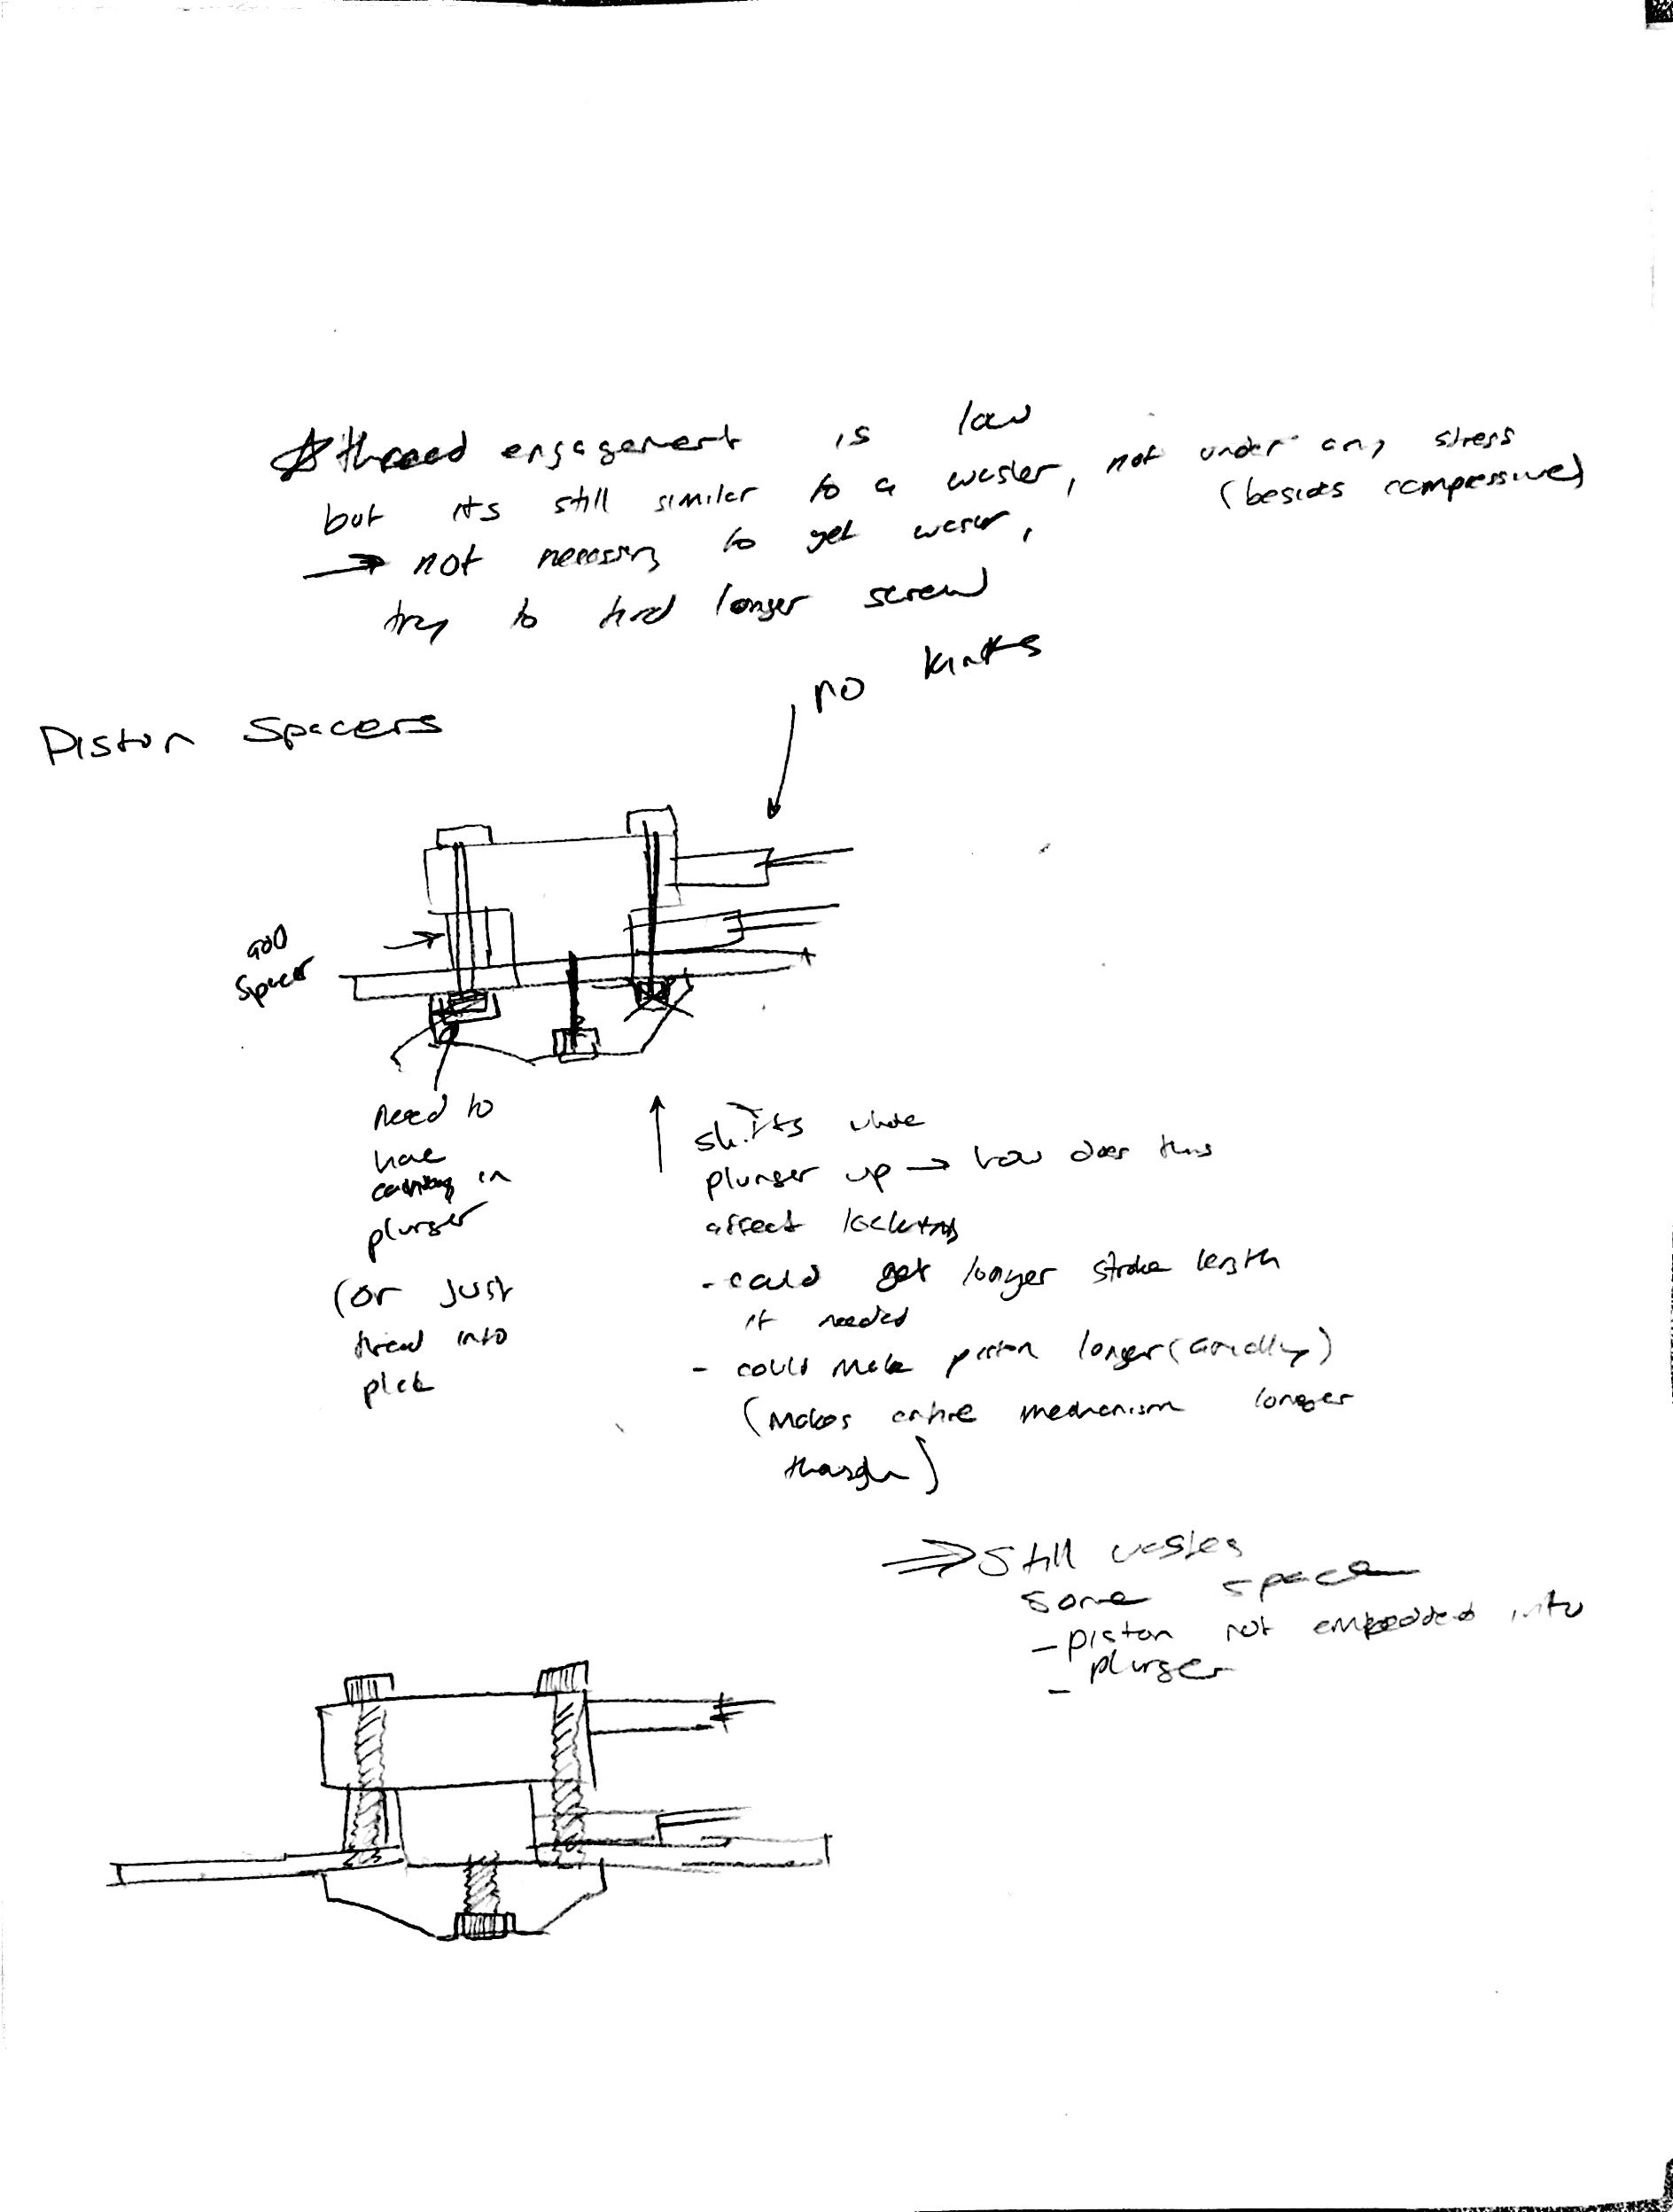 thread engagement is low
but its still similar to a washer, not under any stress
(besides compressive)
→ not necessary to get washer,
try to find longer screw
no kinks
Piston Spacers
add
spacer
need to
have
in
plunger
(or just
thread into
plate
shifts whole
plunger up → how does this
affect locking
- could get longer stroke length
if needed
- could make piston longer (axially)
(makes entire mechanism longer
though)
⇒ Still wastes
some space
- piston not embedded into
- plunger